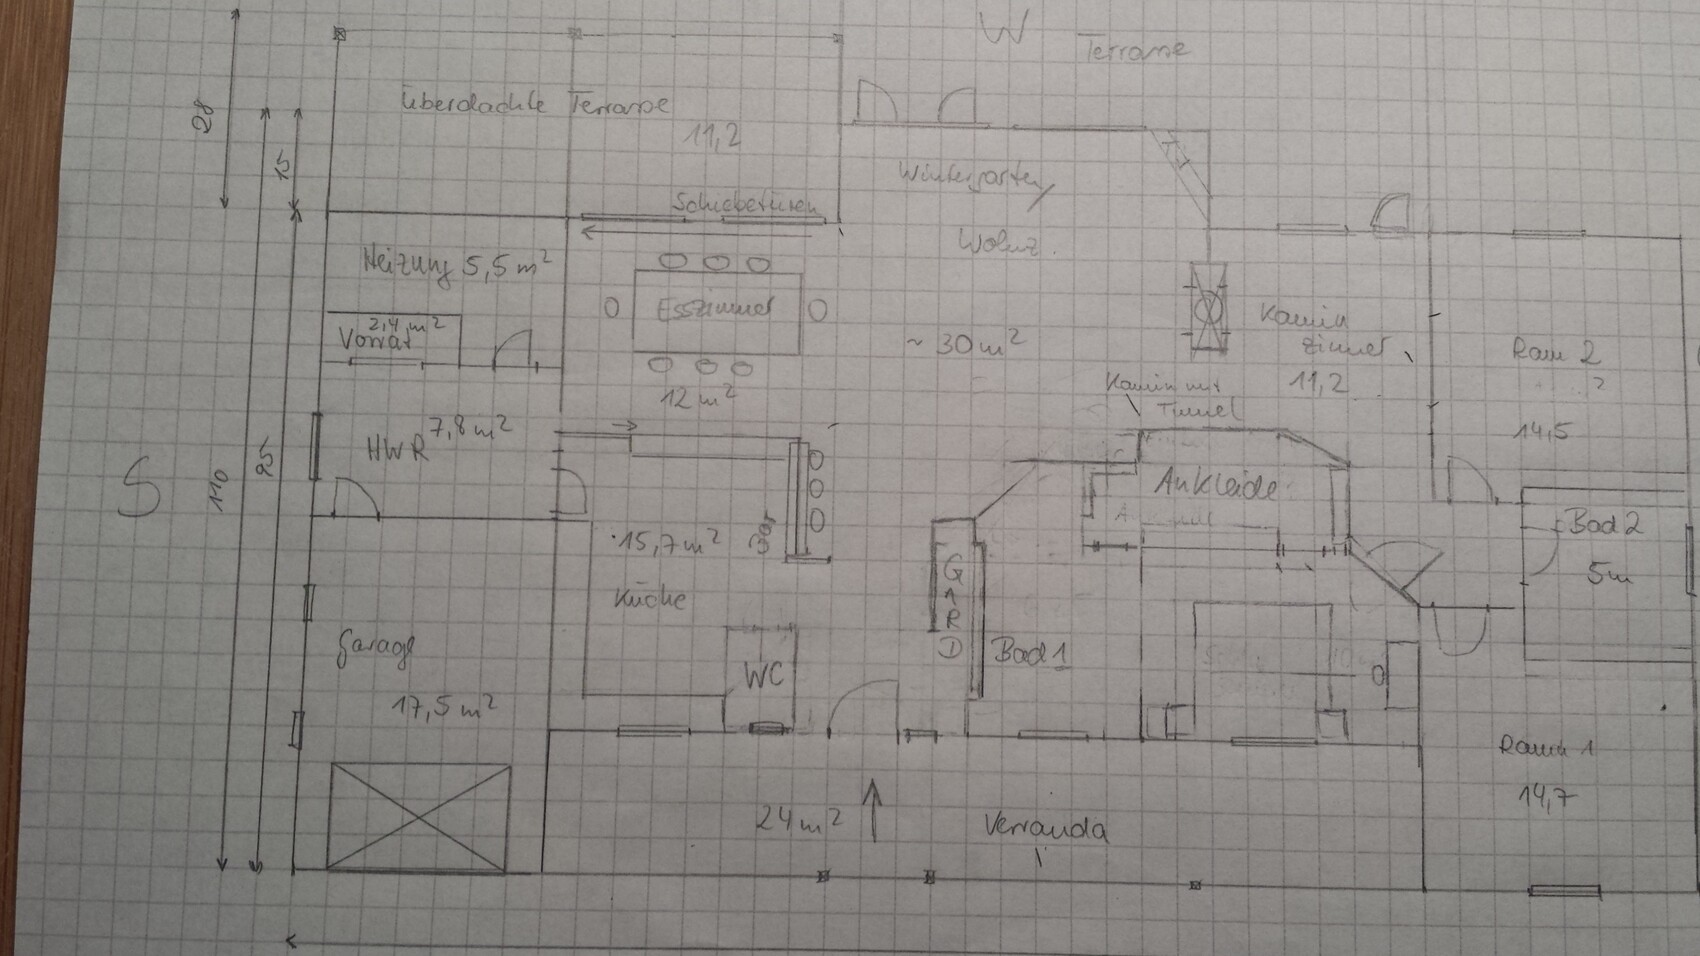 W
Terrasse
28
Überdachte Terrasse
11,2
15
Wintergarten
Schiebetüren
Wohnz.
Heizung 5,5 m²
Esszimmer
2,4 m²
Vorrat
~ 30 m²
Kamin
zimmer
11,2
Raum 2
?
14,5
12 m²
Kamin mit
Tunnel
HWR 7,8 m²
S
110
95
Ankleide
Bad 2
5m
15,7 m²
Bar
Küche
GARD
Garage
WC
Bad 1
17,5 m²
Raum 1
14,7
24 m²
Verranda